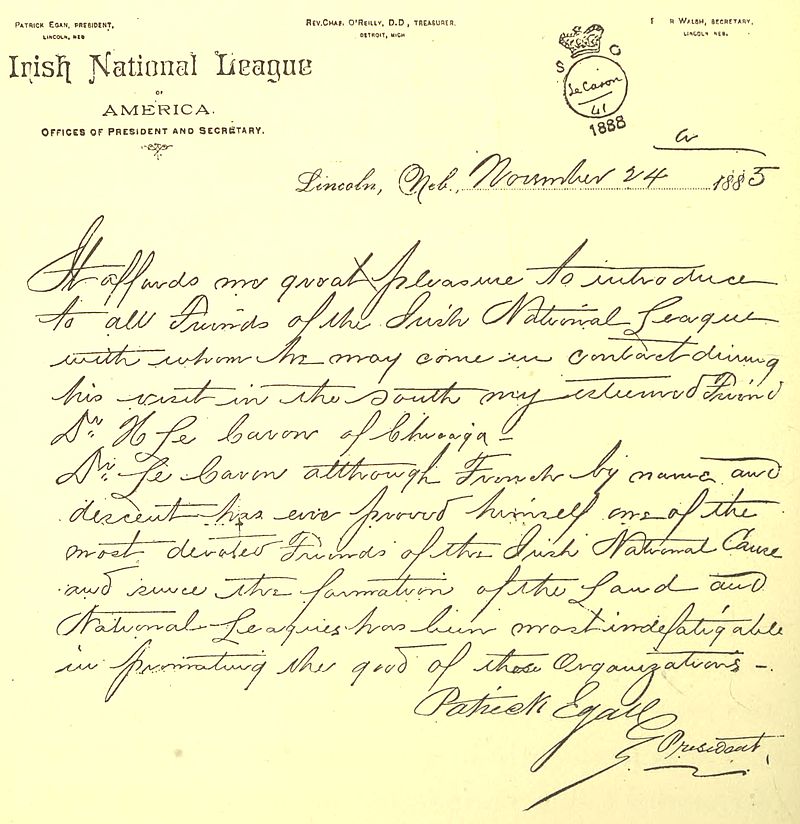 PATRICK EGAN, PRESIDENT,
LINCOLN, NEB
REV. CHAS. O'REILLY, D.D., TREASURER.
DETROIT, MICH
R WALSH, SECRETARY,
LINCOLN NEB.
Irish National League
OF
AMERICA.
OFFICES OF PRESIDENT AND SECRETARY.
S O
Le Caron
41
1888
a
Lincoln, Neb., November 24 1885
It affords me great pleasure to introduce
to all Friends of the Irish National League
with whom he may come in contact during
his visit in the south my esteemed Friend
Dr. H Le Caron of Chicago –
Dr. Le Caron although French by name and
descent has ever proved himself one of the
most devoted Friends of the Irish National Cause
and since the formation of the Land and
National Leagues has been most indefatigable
in promoting the good of those Organizations –.
Patrick Egan
President,